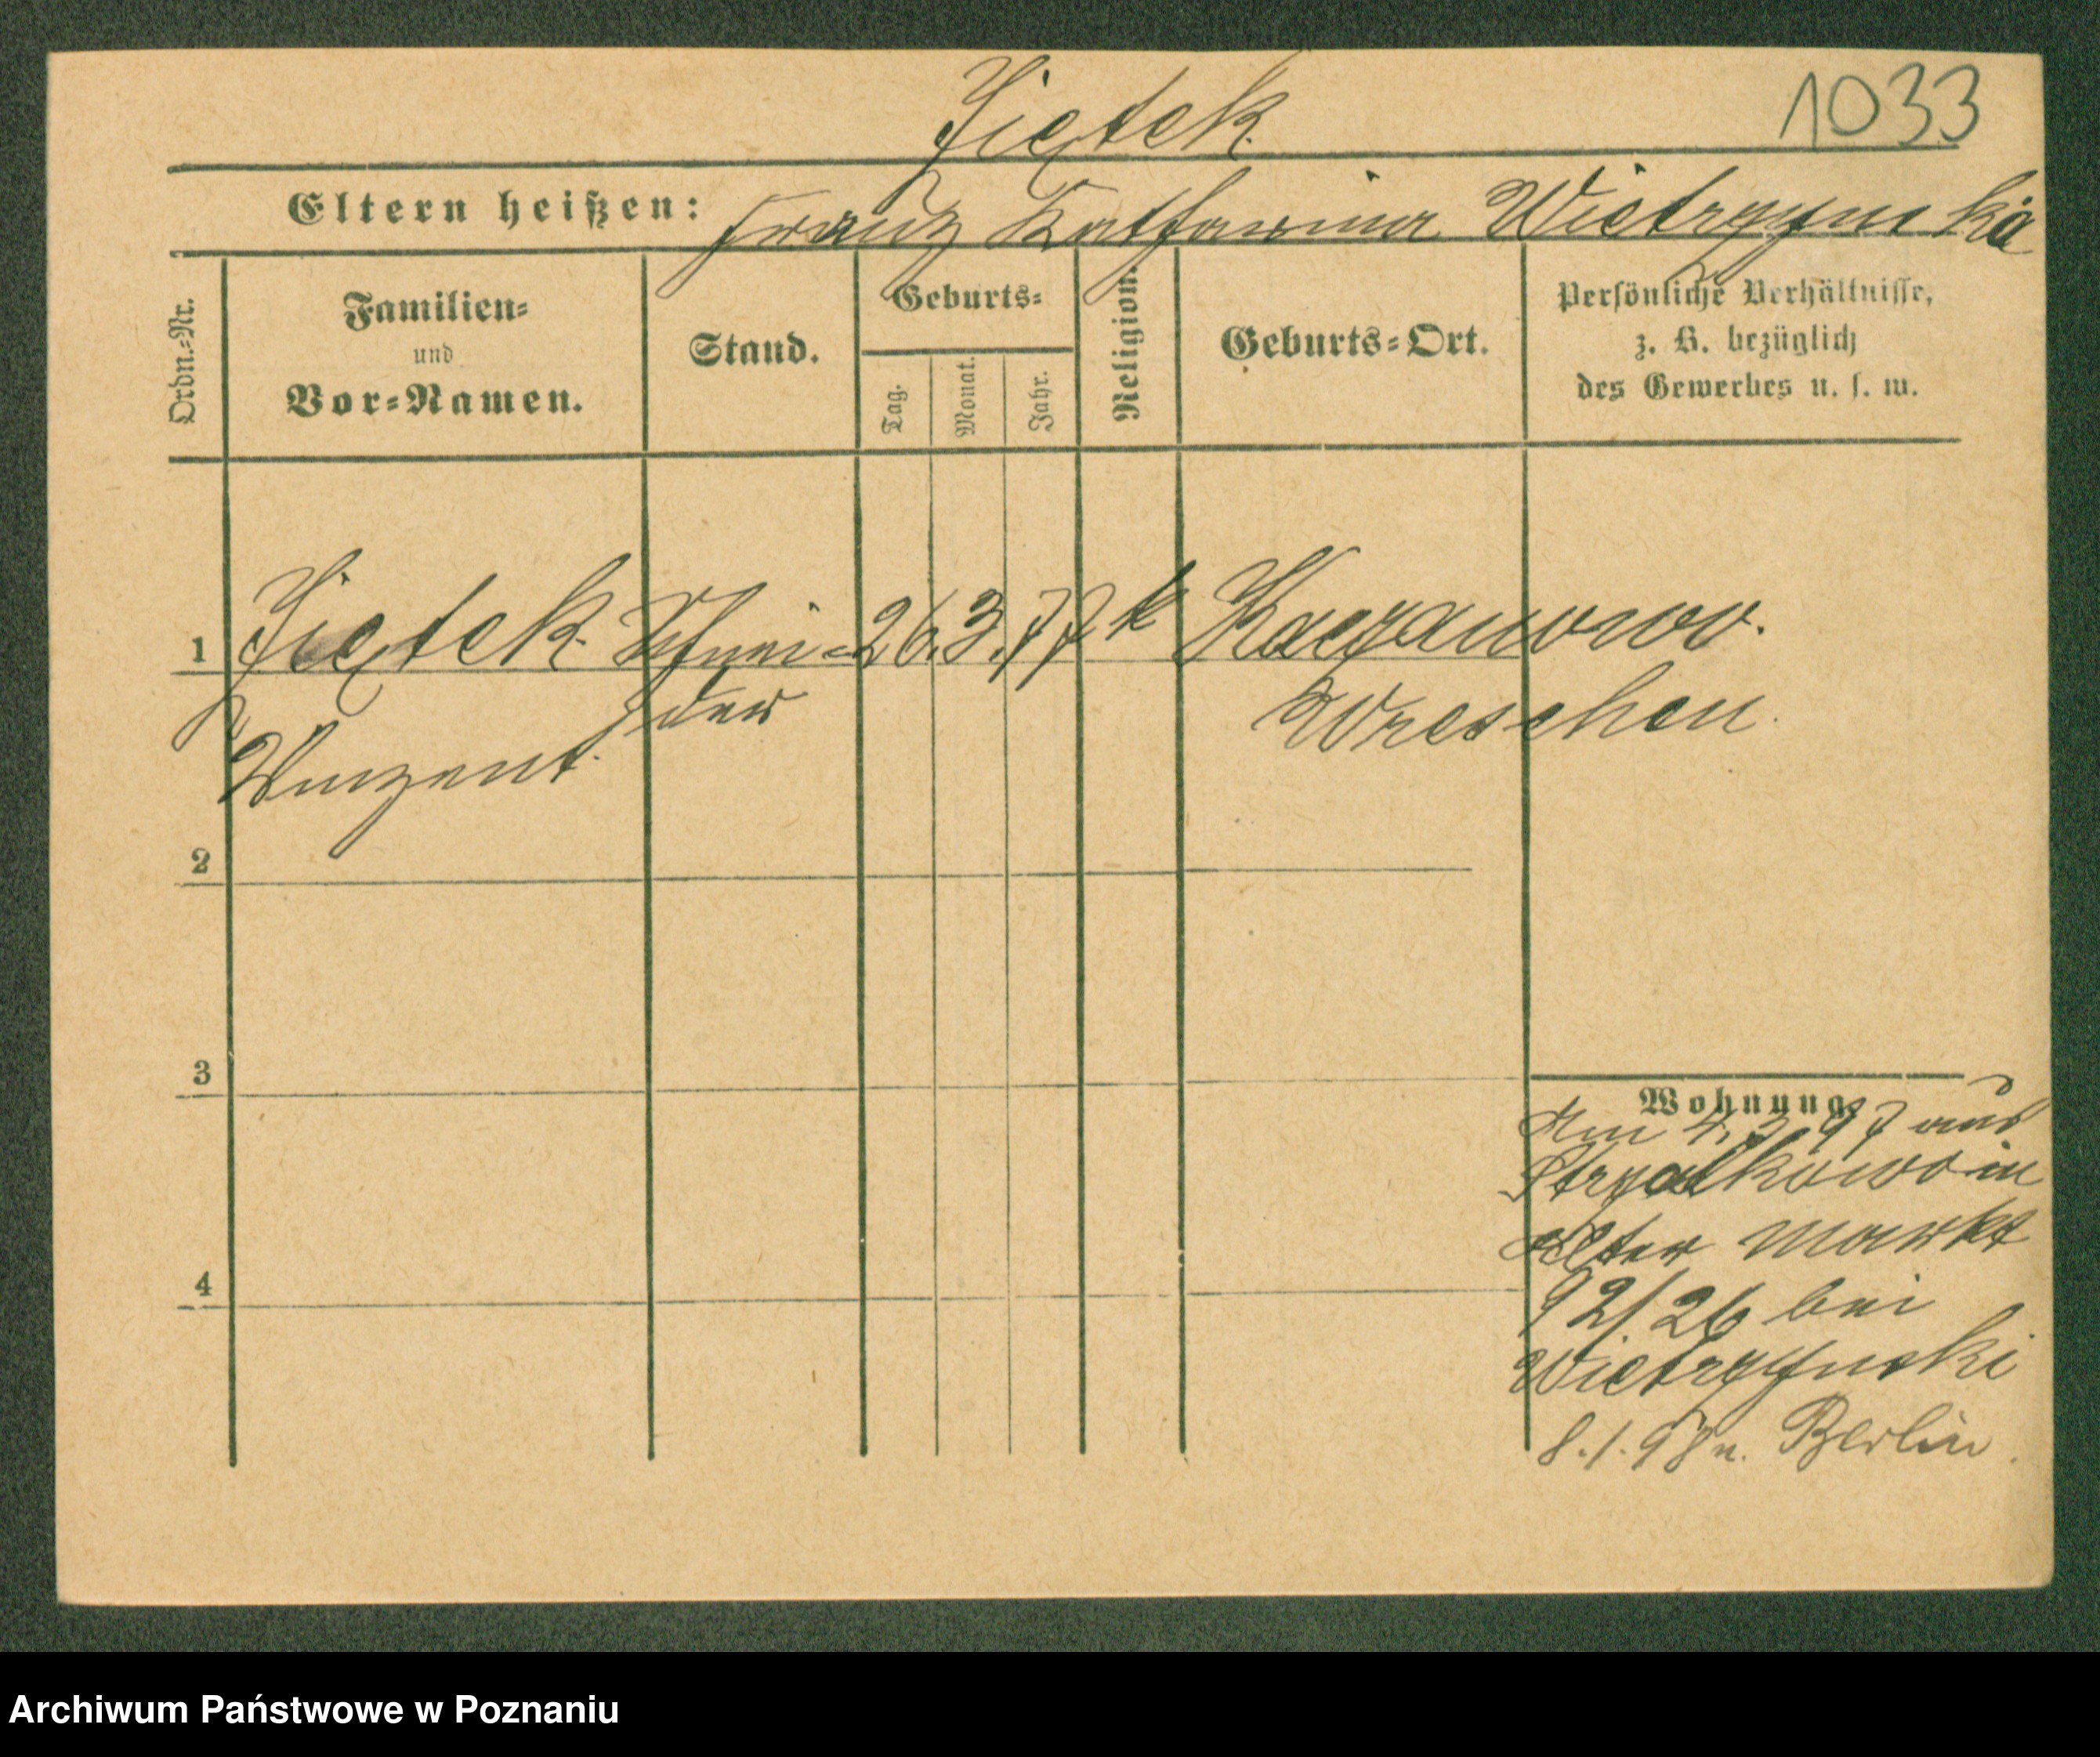 Ziętek
1033
Eltern heißen: Franz Katharina Wietrzyńska
Ordn.-Nr.
Familien- und Vor-Namen.
Stand.
Geburts-
Tag.
Monat.
Jahr.
Religion.
Geburts-Ort.
Persönliche Verhältnisse,
z. B. bezüglich
des Gewerbes u. s. w.
1 Ziętek Schnei- 26.3.77 k Kaczanowo.
der Wreschen.
Vinzent.
2
3
4
Wohnung.
Am 4.3.97 aus
Strzalkowo in
Alter Markt
92/26 bei
Wietrzynski
8.1.98 n. Berlin.
Archiwum Państwowe w Poznaniu